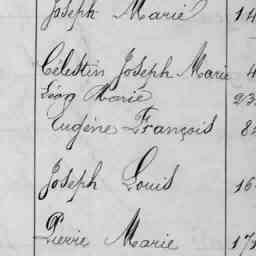 Joseph Marie 14
Célestin Joseph Marie 4
Léon Marie 23
Eugène François 82
Joseph Louis 16
Pierre Marie 171